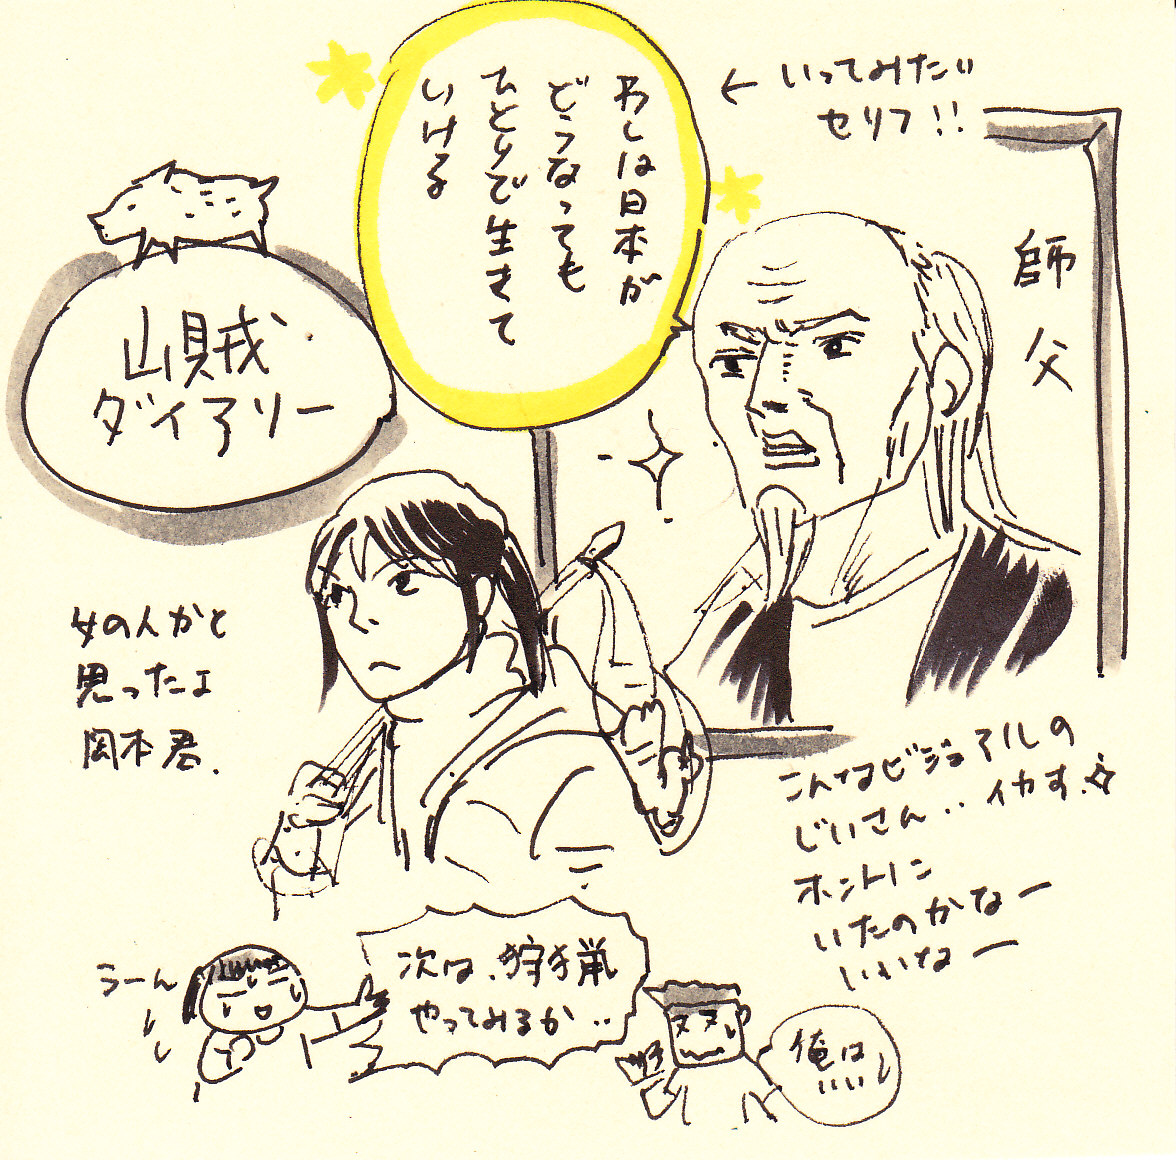 いってみたい
セリフ!!
わしは日本が
どうなっても
ひとりで生きて
いける
師父
山賊
ダイアリー
女の人かと
思ったよ
岡本君.
こんなビジュアルの
じいさん‥イカす.
ホントに
いたのかなー
いいなー
うーん
次は、狩猟
やってみるか‥
俺は
いいい